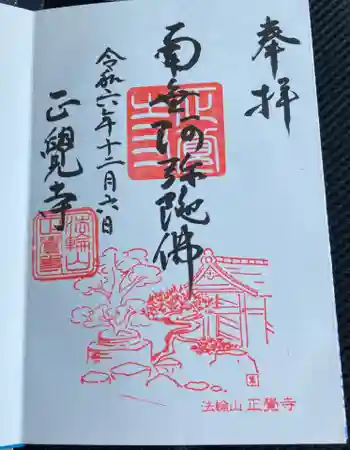 奉拝
南無阿弥陀佛
令和六年十二月六日
正覺寺
正覺
法輪山
法輪山 正覺寺